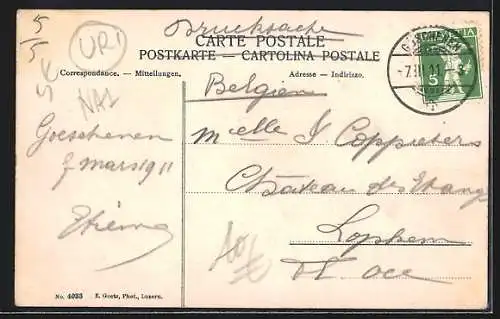 Drucksache
CARTE POSTALE
POSTKARTE — CARTOLINA POSTALE
Correspondance. — Mitteilungen.
Adresse — Indirizzo.
5
5
SC
URI
NAZ
Belgien
GÖSCHENEN
-7.III.11
5
Goeschenen
7 mars 1911
Etienne
Melle J Coppieters
Château des Etangs
Lophem
Fl. Occ
No. 4033 E. Goetz, Phot., Luzern.